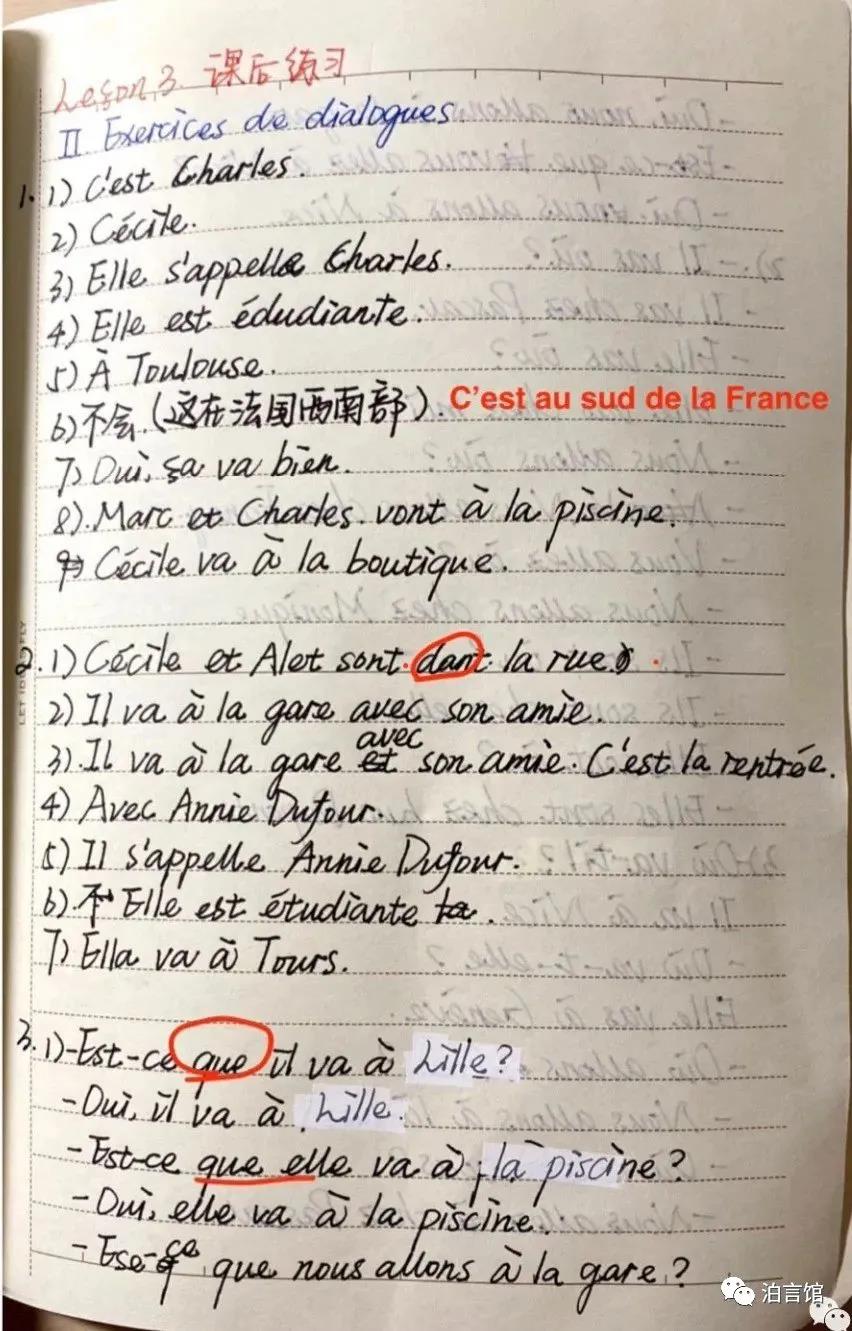 Lesson 3. 课后练习
II Exercices de dialogues.
1. 1) C'est Charles.
2) Cécile.
3) Elle s'appelle Charles.
4) Elle est édudiante.
5) À Toulouse.
6) 不会.(这在法国西南部). C'est au sud de la France
7) Oui, ça va bien.
8). Marc et Charles. vont à la piscine.
9) Cécile va à la boutique.
2. 1) Cécile et Alet sont dant la rue.
2) Il va à la gare avec son amie.
avec
3). Il va à la gare et son amie. C'est la rentrée.
4) Avec Annie Dufour.
5) Il s'appelle Annie Dufour.
6). Elle est étudiante.
7) Ella va à Tours.
3. 1) -Est-ce que il va à Lille?
-Oui, il va à Lille.
-Est-ce que elle va à la piscine?
-Oui, elle va à la piscine.
-Ese-ce que nous allons à la gare?
泊言馆